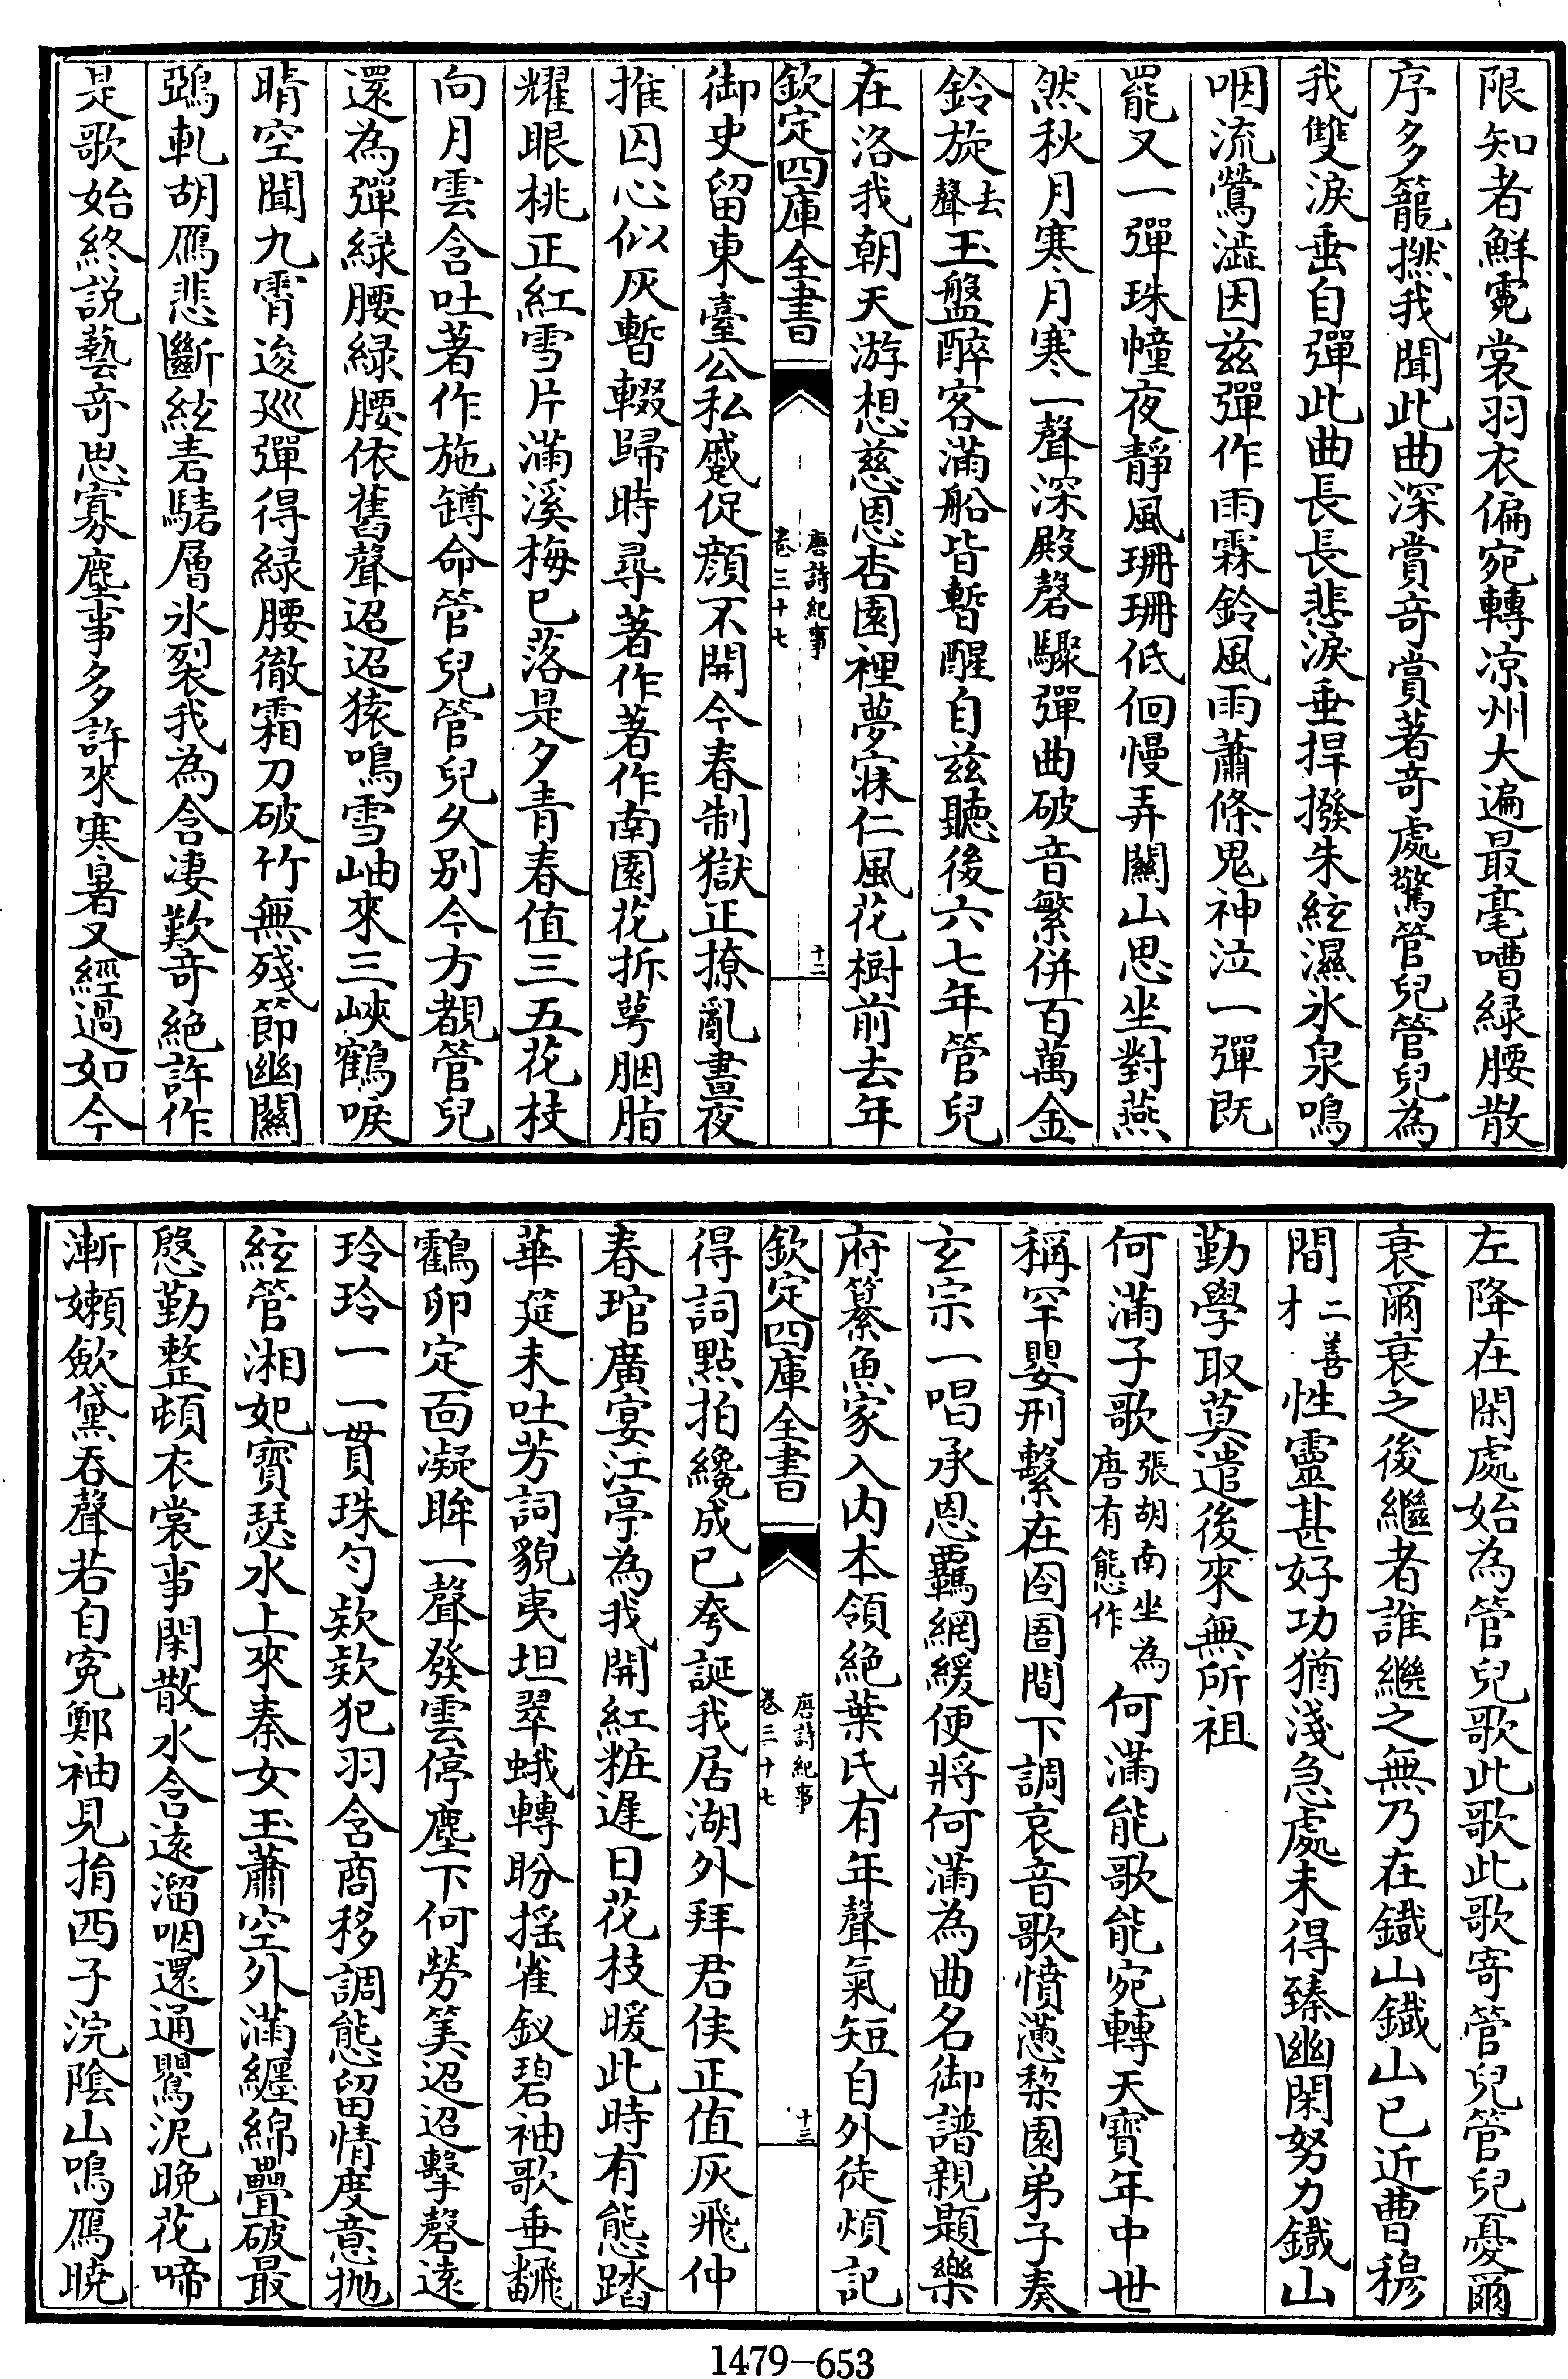 限知者鮮霓裳羽衣偏宛轉凉州大遍最毫嘈緑腰散
序多籠撚我聞此曲深賞竒賞著竒處驚管兒管兒為
我雙淚垂自彈此曲長長悲淚垂捍撥朱絃濕氷泉鳴
咽流鶯澁因兹彈作雨霖鈴風雨蕭條鬼神泣一彈既
罷又一彈珠幢夜靜風珊珊低佪慢弄關山思坐對燕
然秋月寒月寒一聲深殿磬驟彈曲破音繁併百萬金
鈴旋去聲玉盤醉客滿船皆暫醒自兹聽後六七年管兒
在洛我朝天游想慈恩杏園裡夢寐仁風花樹前去年
欽定四庫全書 唐詩紀事 卷三十七 十二
御史留東臺公私蹙促顔不開今春制獄正撩亂晝夜
推囚心似灰暫輟歸時尋著作著作南園花拆萼胭脂
耀眼桃正紅雪片滿溪梅已落是夕青春值三五花枝
向月雲含吐著作施罇命管兒管兒久别今方覩管兒
還為彈緑腰緑腰依舊聲迢迢猿鳴雪岫來三峽鶴唳
晴空聞九霄逡廵彈得緑腰徹霜刀破竹無殘節幽關
鵶軋胡鴈悲斷絃砉騞層氷裂我為含凄歎竒絶許作
是歌始終説藝竒思寡塵事多許來寒暑又經過如今
左降在閑處始為管兒歌此歌此歌寄管兒管兒憂爾
衰爾衰之後繼者誰繼之無乃在鐡山鐡山已近曹穆
間二善才性靈甚好功猶淺急處未得臻幽閑努力鐡山
勤學取莫遣後來無所祖
何滿子歌張胡南坐為唐有態作何滿能歌能宛轉天寶年中世
稱罕嬰刑繫在囹圄間下調哀音歌憤懣棃園弟子奏
玄宗一唱承恩羈網緩便將何滿為曲名御譜親題樂
府纂魚家入内本領絶葉氏有年聲氣短自外徒煩記
欽定四庫全書 唐詩紀事 卷三十七 十三
得詞點拍纔成已夸誕我居湖外拜君侯正值灰飛仲
春琯廣宴江亭為我開紅粧遲日花枝暖此時有態踏
華筵未吐芳詞貌夷坦翠蛾轉盼揺雀釵碧袖歌垂飜
鸛卵定面凝眸一聲發雲停塵下何勞筭迢迢擊磬遠
玲玲一一貫珠勻欵欵犯羽含商移調態留情度意抛
絃管湘妃寳瑟水上來秦女玉簫空外滿纒綿疊破最
慇勤整頓衣裳事閑散水含遠溜咽還通鸎泥晚花啼
漸嬾歛黛吞聲若自寃鄭袖見捐西子浣陰山鳴鴈曉
1479-653